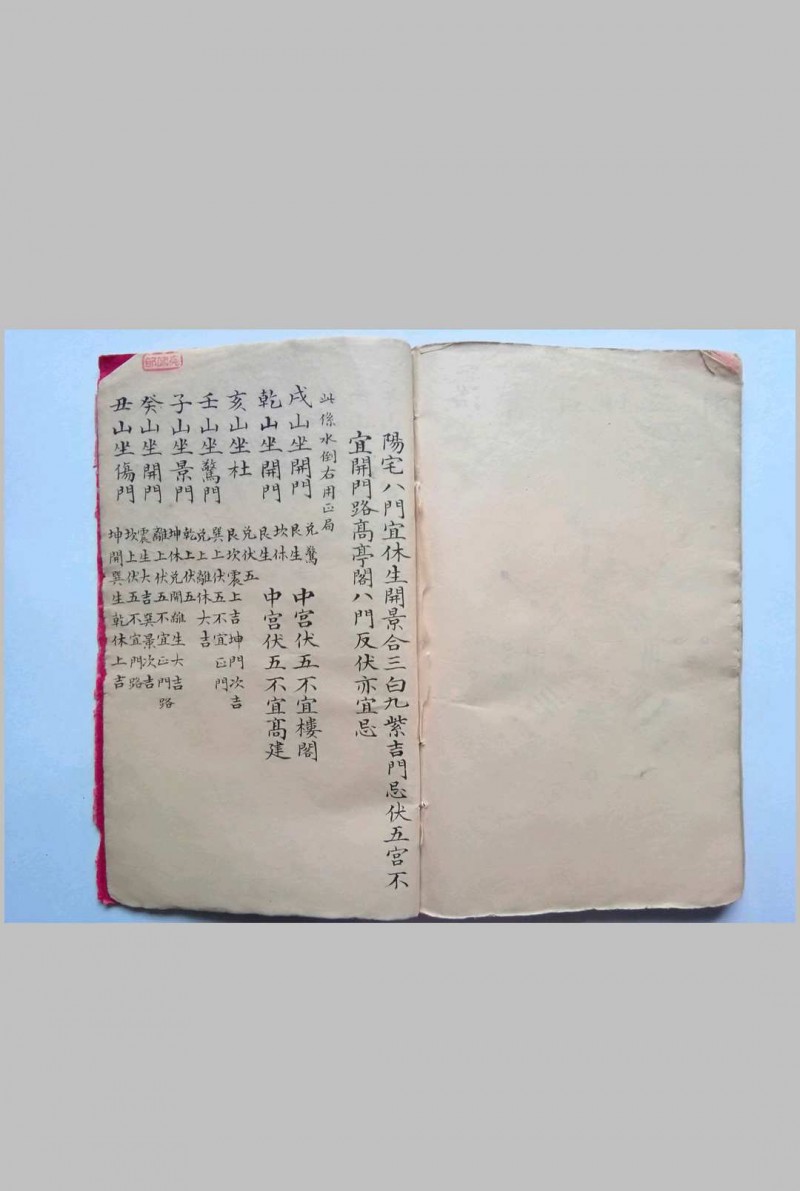 陽宅八門宜休生開景合三白九紫吉門忌伏五宮不
宜開門路高亭閣八門反伏亦宜忌
此係水倒右用正局
戌山坐開門 兌驚 艮生 中宮伏五不宜樓閣
乾山坐開門 坎休 艮生 中宮伏五不宜高建
亥山坐杜 兌伏五 艮坎震上吉坤門次吉
壬山坐驚門 巽上伏五不宜正門 兌上離休大吉
子山坐景門 乾上伏五 坤休兌開離生大吉
癸山坐開門 離上伏五不宜正門路 震生大吉巽景次吉
丑山坐傷門 坎上伏五不宜門路 坤開巽生乾休上吉